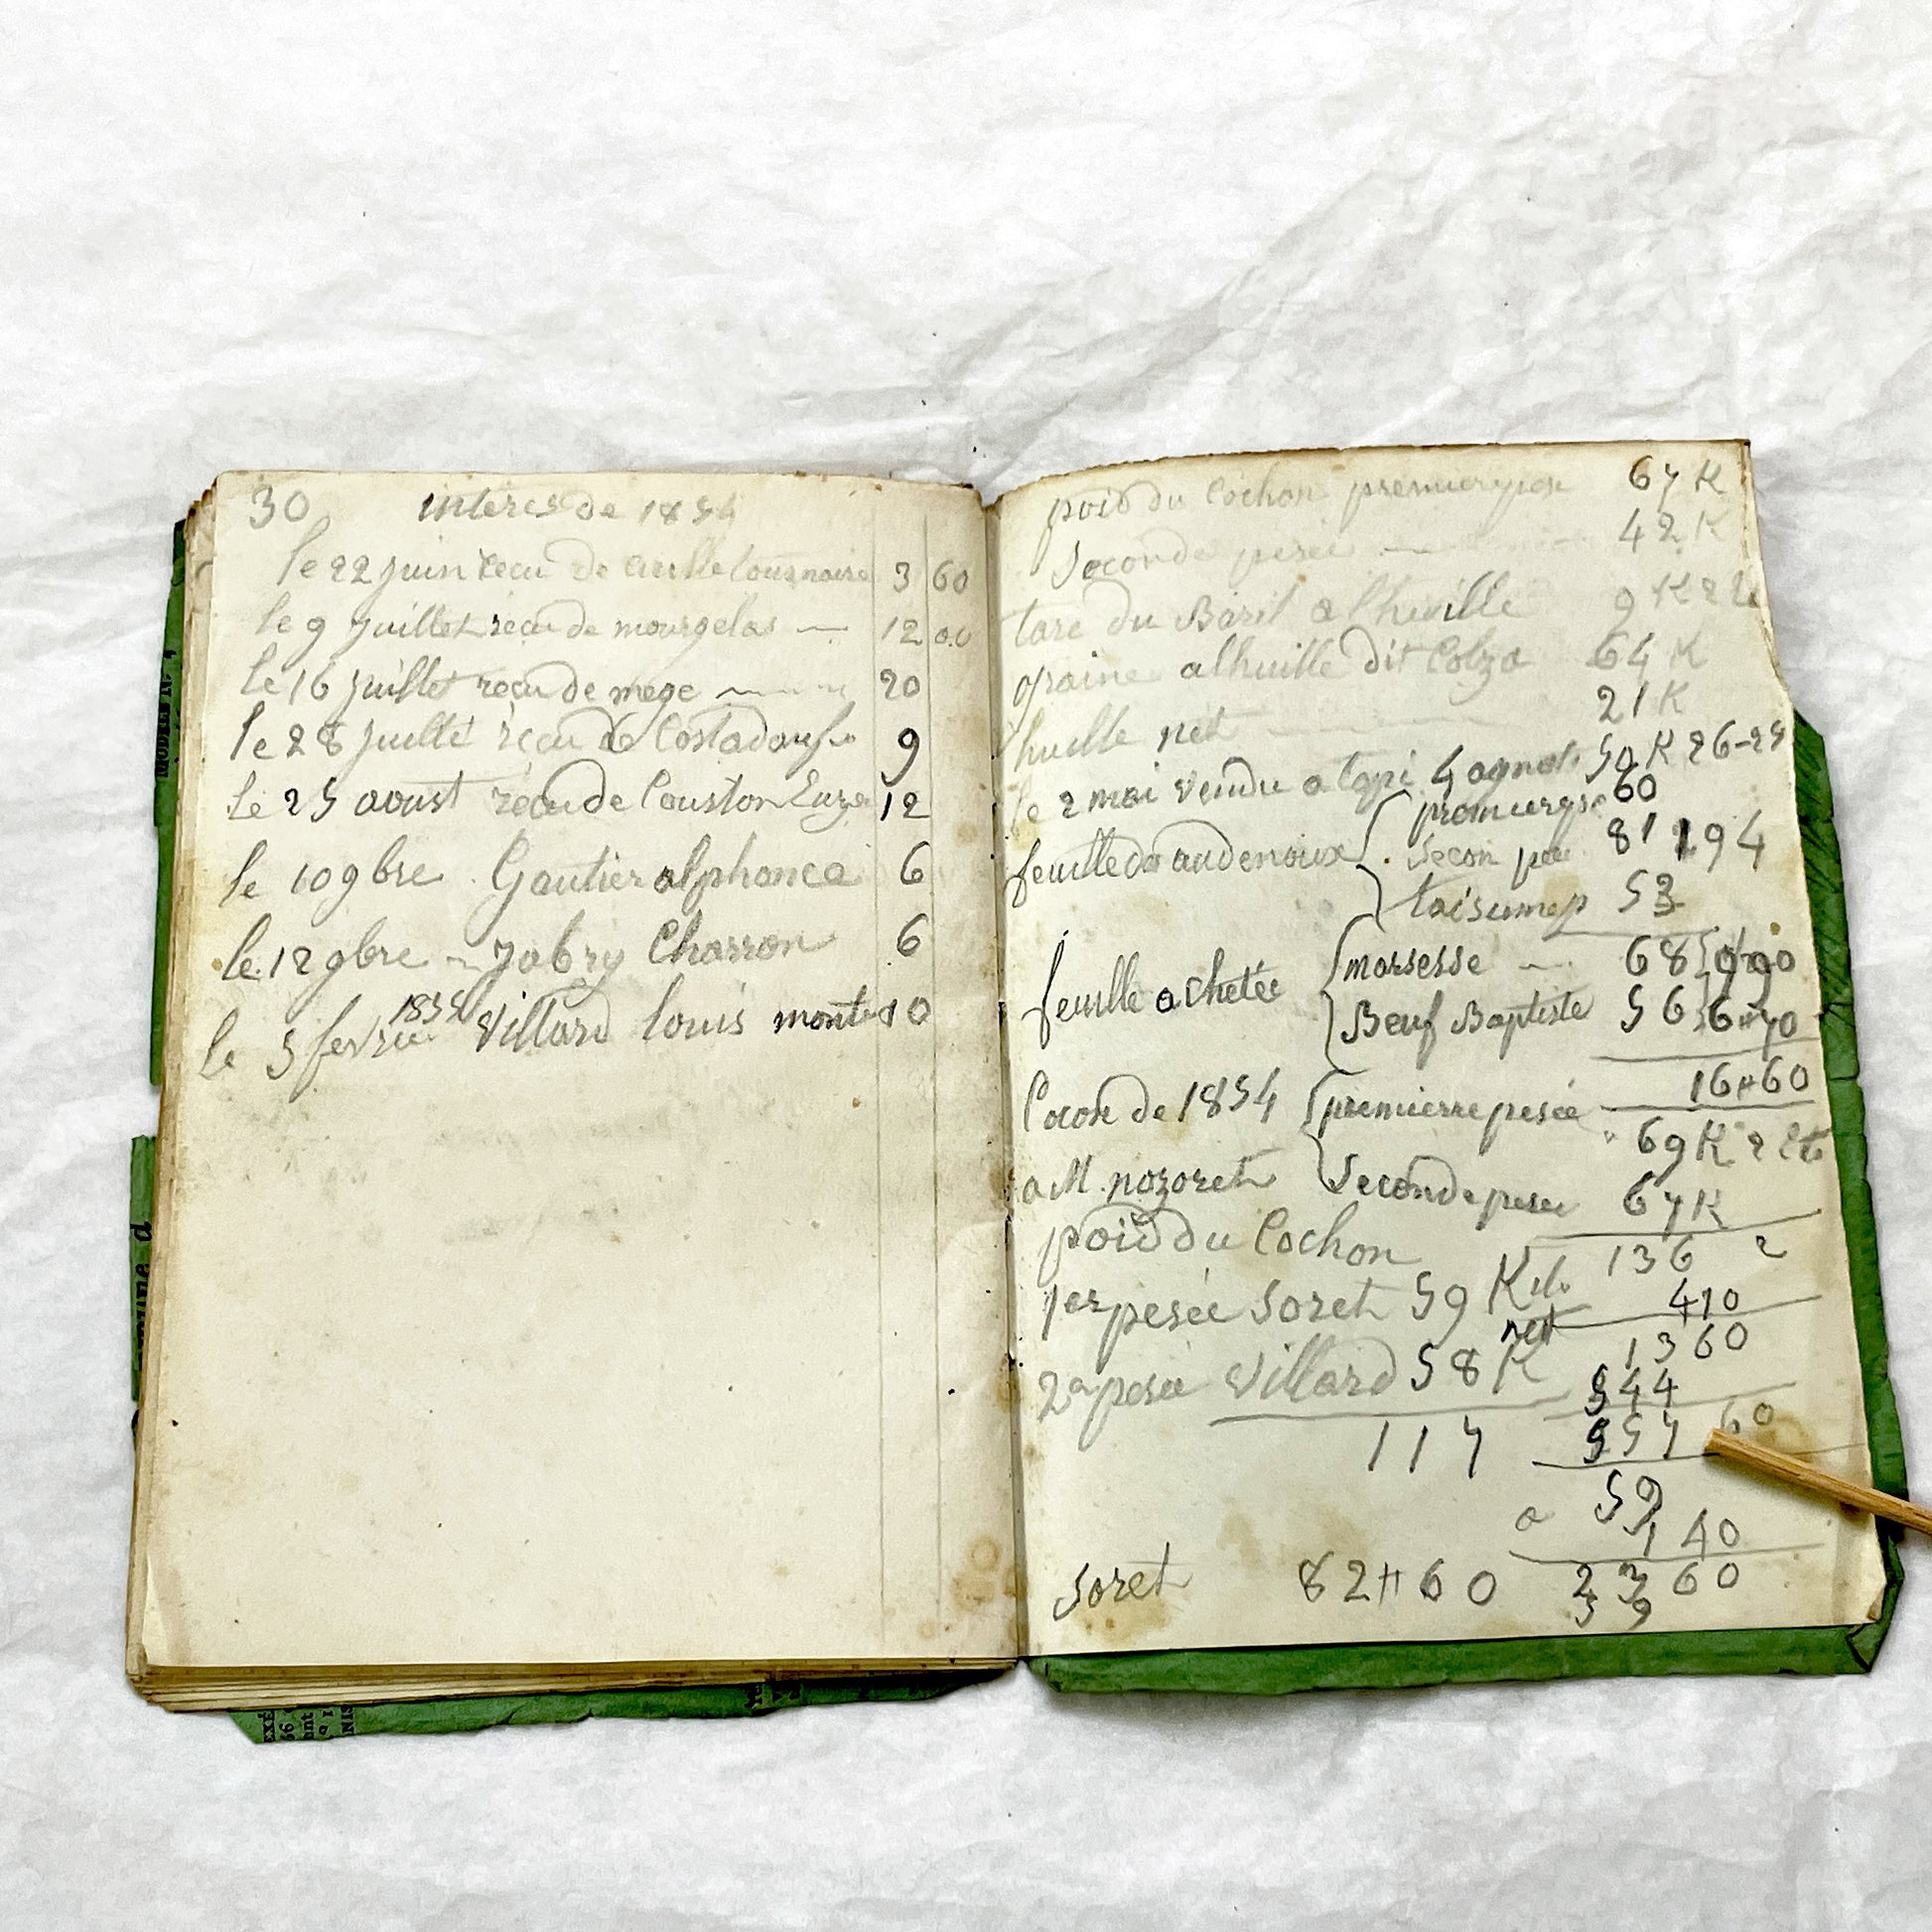 30 interes de 1854
le 22 juin recu de 3 60
le 9 Juillet recu de mourgelas 12 00
le 16 juillet recu de mege 20
le 28 juillé recu de 9
le 25 aoust recu de Couston 12
le 10 9bre Gautier alphonce 6
le 12 9bre Jabry Charron 6
1855
le 5 fevrier Villard louis monte 10
poid du Cochon premier pese 67 K
Seconde pesee 42 K
tare du Baril a lhuille 9 K 2
graine a lhuille dit Colza 64 K
huille net 21 K
le 2 mai vendu a 4 50 K 26-25
feuille premier 60
Secon 81 194
53
feuille achetée morsesse 68
Beuf Baptiste 56
16#60
Cocon de 1854 premierre pesée 69 K 2
a M. nozoret Seconde pesee 67 K
poid du Cochon 136 2
1er pesée Soret 59 Kilo 410
net 1360
2e pesee Villard 58 K 544
117 557 60
59
a 1 40
Soret 82#60 23 60
59